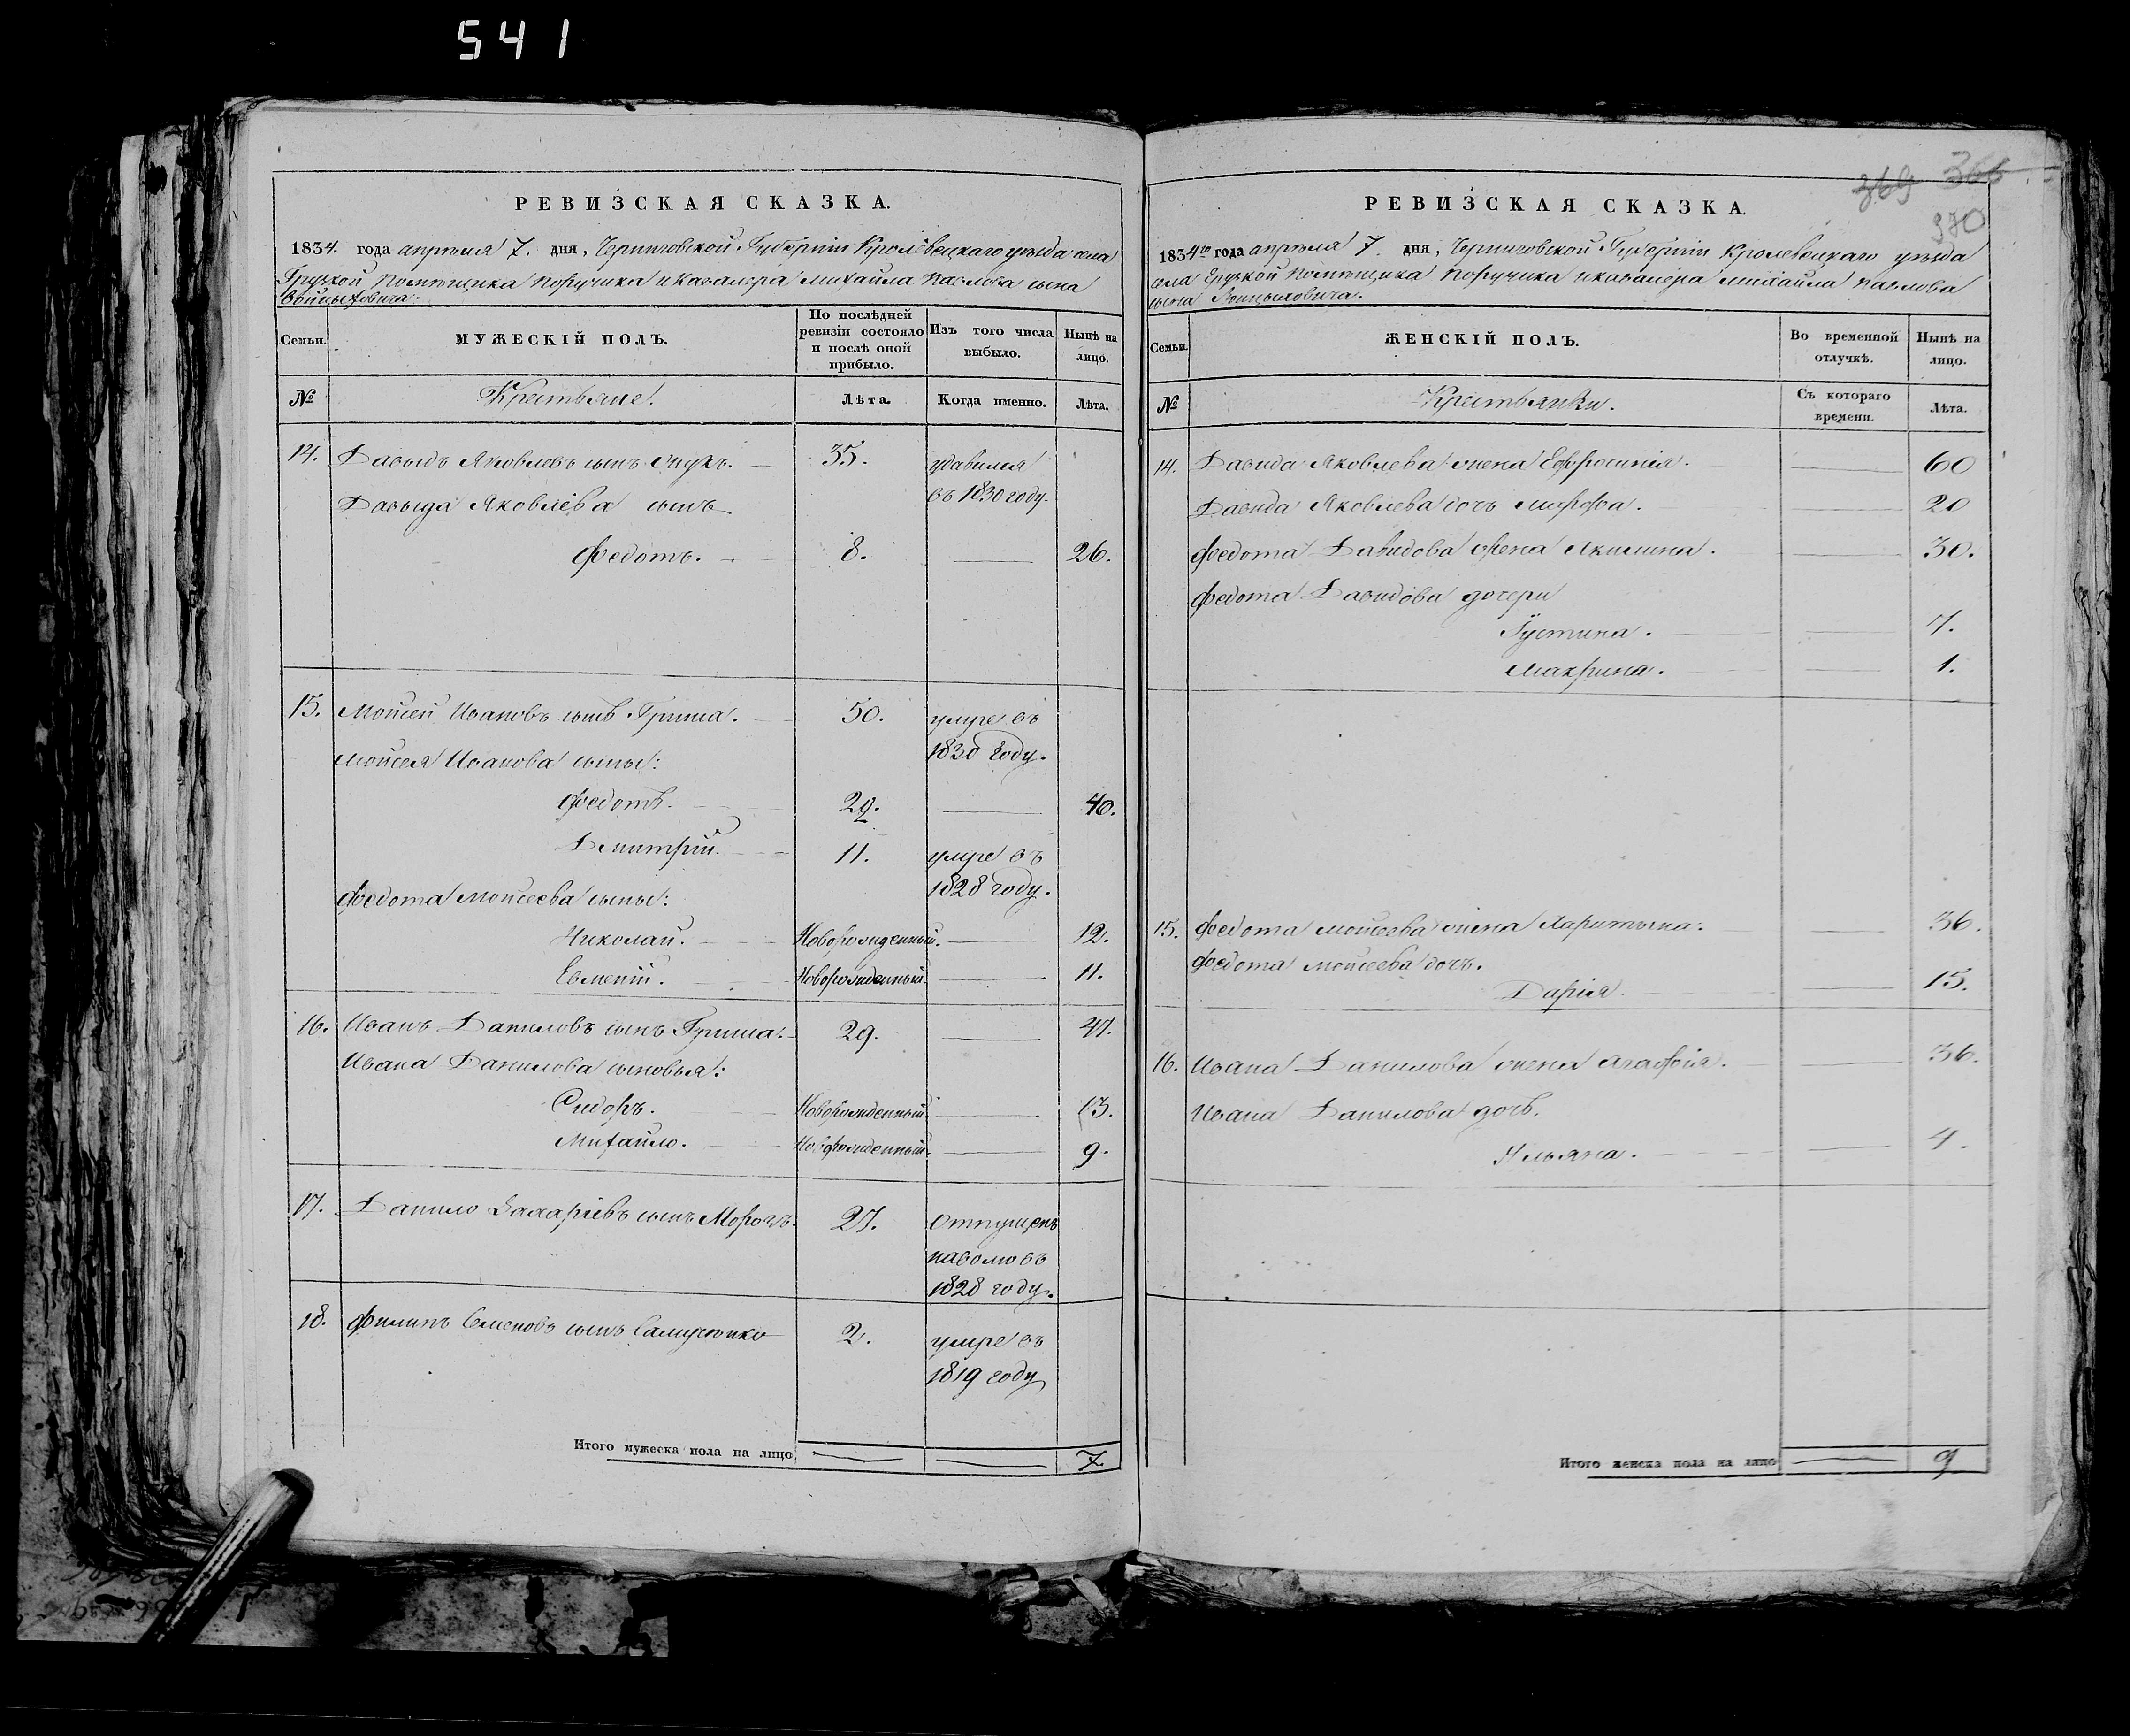 541
РЕВИЗСКАЯ СКАЗКА.
1834. года апреля 7. дня, Черниговской Губерніи Кролевецкаго уезда села
Грузкой помещика поручика и Кавалера Михаила Павлова сына
Семьи.
МУЖЕСКІЙ ПОЛЪ.
По послѣдней ревизіи состояло и послѣ оной прибыло.
Изъ того числа выбыло.
Нынѣ на лицо.
№
Крестьяне.
Лѣта.
Когда именно.
Лѣта.
14. Давыдъ Яковлевъ сынъ 35. удавился
въ 1830 году.
Давыда Яковлева сынъ
Федотъ. 8. 26.
15. Мойсей Ивановъ сынъ Гриша. 50. умре въ
1830 году.
Мойсея Иванова сыны:
Федотъ. 29. 40.
Дмитрій. 11. умре въ
1828 году.
Федота Мойсеева сыны:
Николай. Новорожденный. 12.
Евменій. Новорожденный. 11.
16. Иванъ Даниловъ сынъ Гриша. 29. 47.
Ивана Данилова сыновья:
Сидоръ. Новорожденный. 13.
Михайло. Новорожденный. 9.
17. Данило Захаріевъ сынъ Морозъ. 27. Отпущенъ
наволю въ
1828 году.
18. Филипъ Семеновъ сынъ 2. умре въ
1819 году
Итого мужеска пола на лицо 7.
369 366
370
РЕВИЗСКАЯ СКАЗКА.
1834го года апреля 7. дня, Черниговской Губерніи Кролевецкаго уезда
села Грузкой помещика поручика и кавалера Михаила Павлова
сына
Семьи.
ЖЕНСКІЙ ПОЛЪ.
Во временной отлучкѣ.
Нынѣ на лицо.
№
Крестьянки.
Съ котораго времени.
Лѣта.
14. Давида Яковлева жена Ефросинія. 60
Давида Яковлева дочь Марфа. 20
Федота Давидова жена Акилина. 30.
Федота Давидова дочери
Густина. 7.
Макрина. 1.
15. Федота Мойсеева жена Харитына. 36.
Федота Мойсеева дочь.
Дарія. 15.
16. Ивана Данилова жена Агафія. 36.
Ивана Данилова дочь.
Ульяна. 4.
Итого женска пола на лицо 9